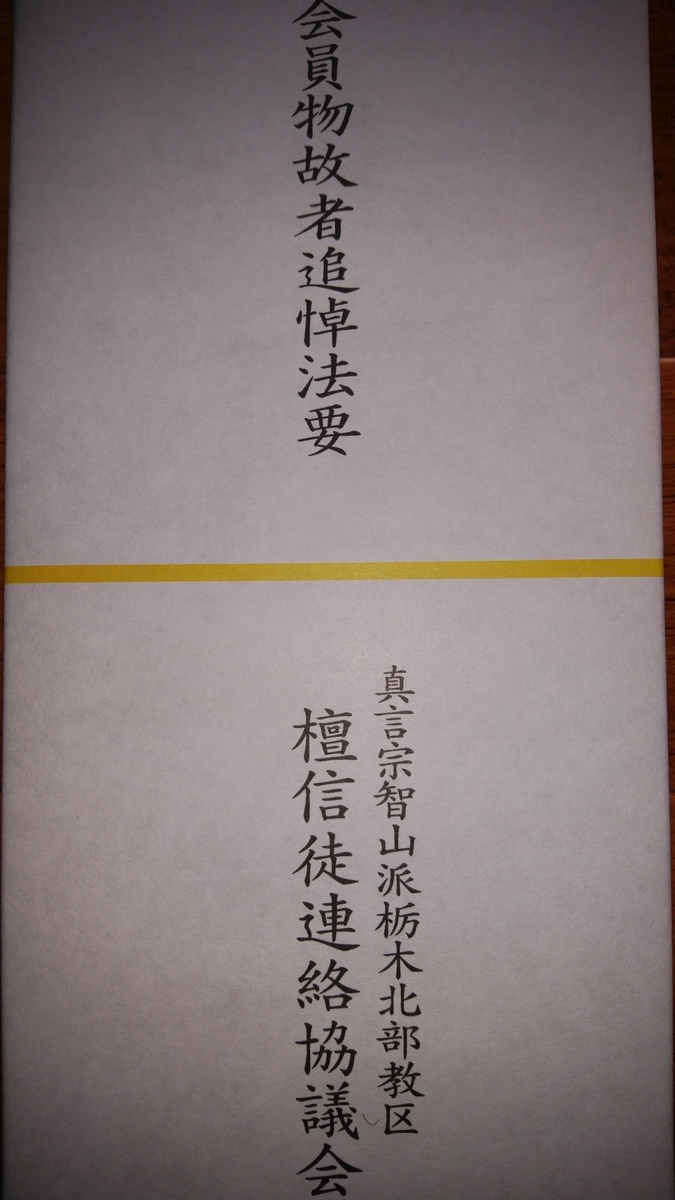 会員物故者追悼法要
真言宗智山派栃木北部教区
檀信徒連絡協議会